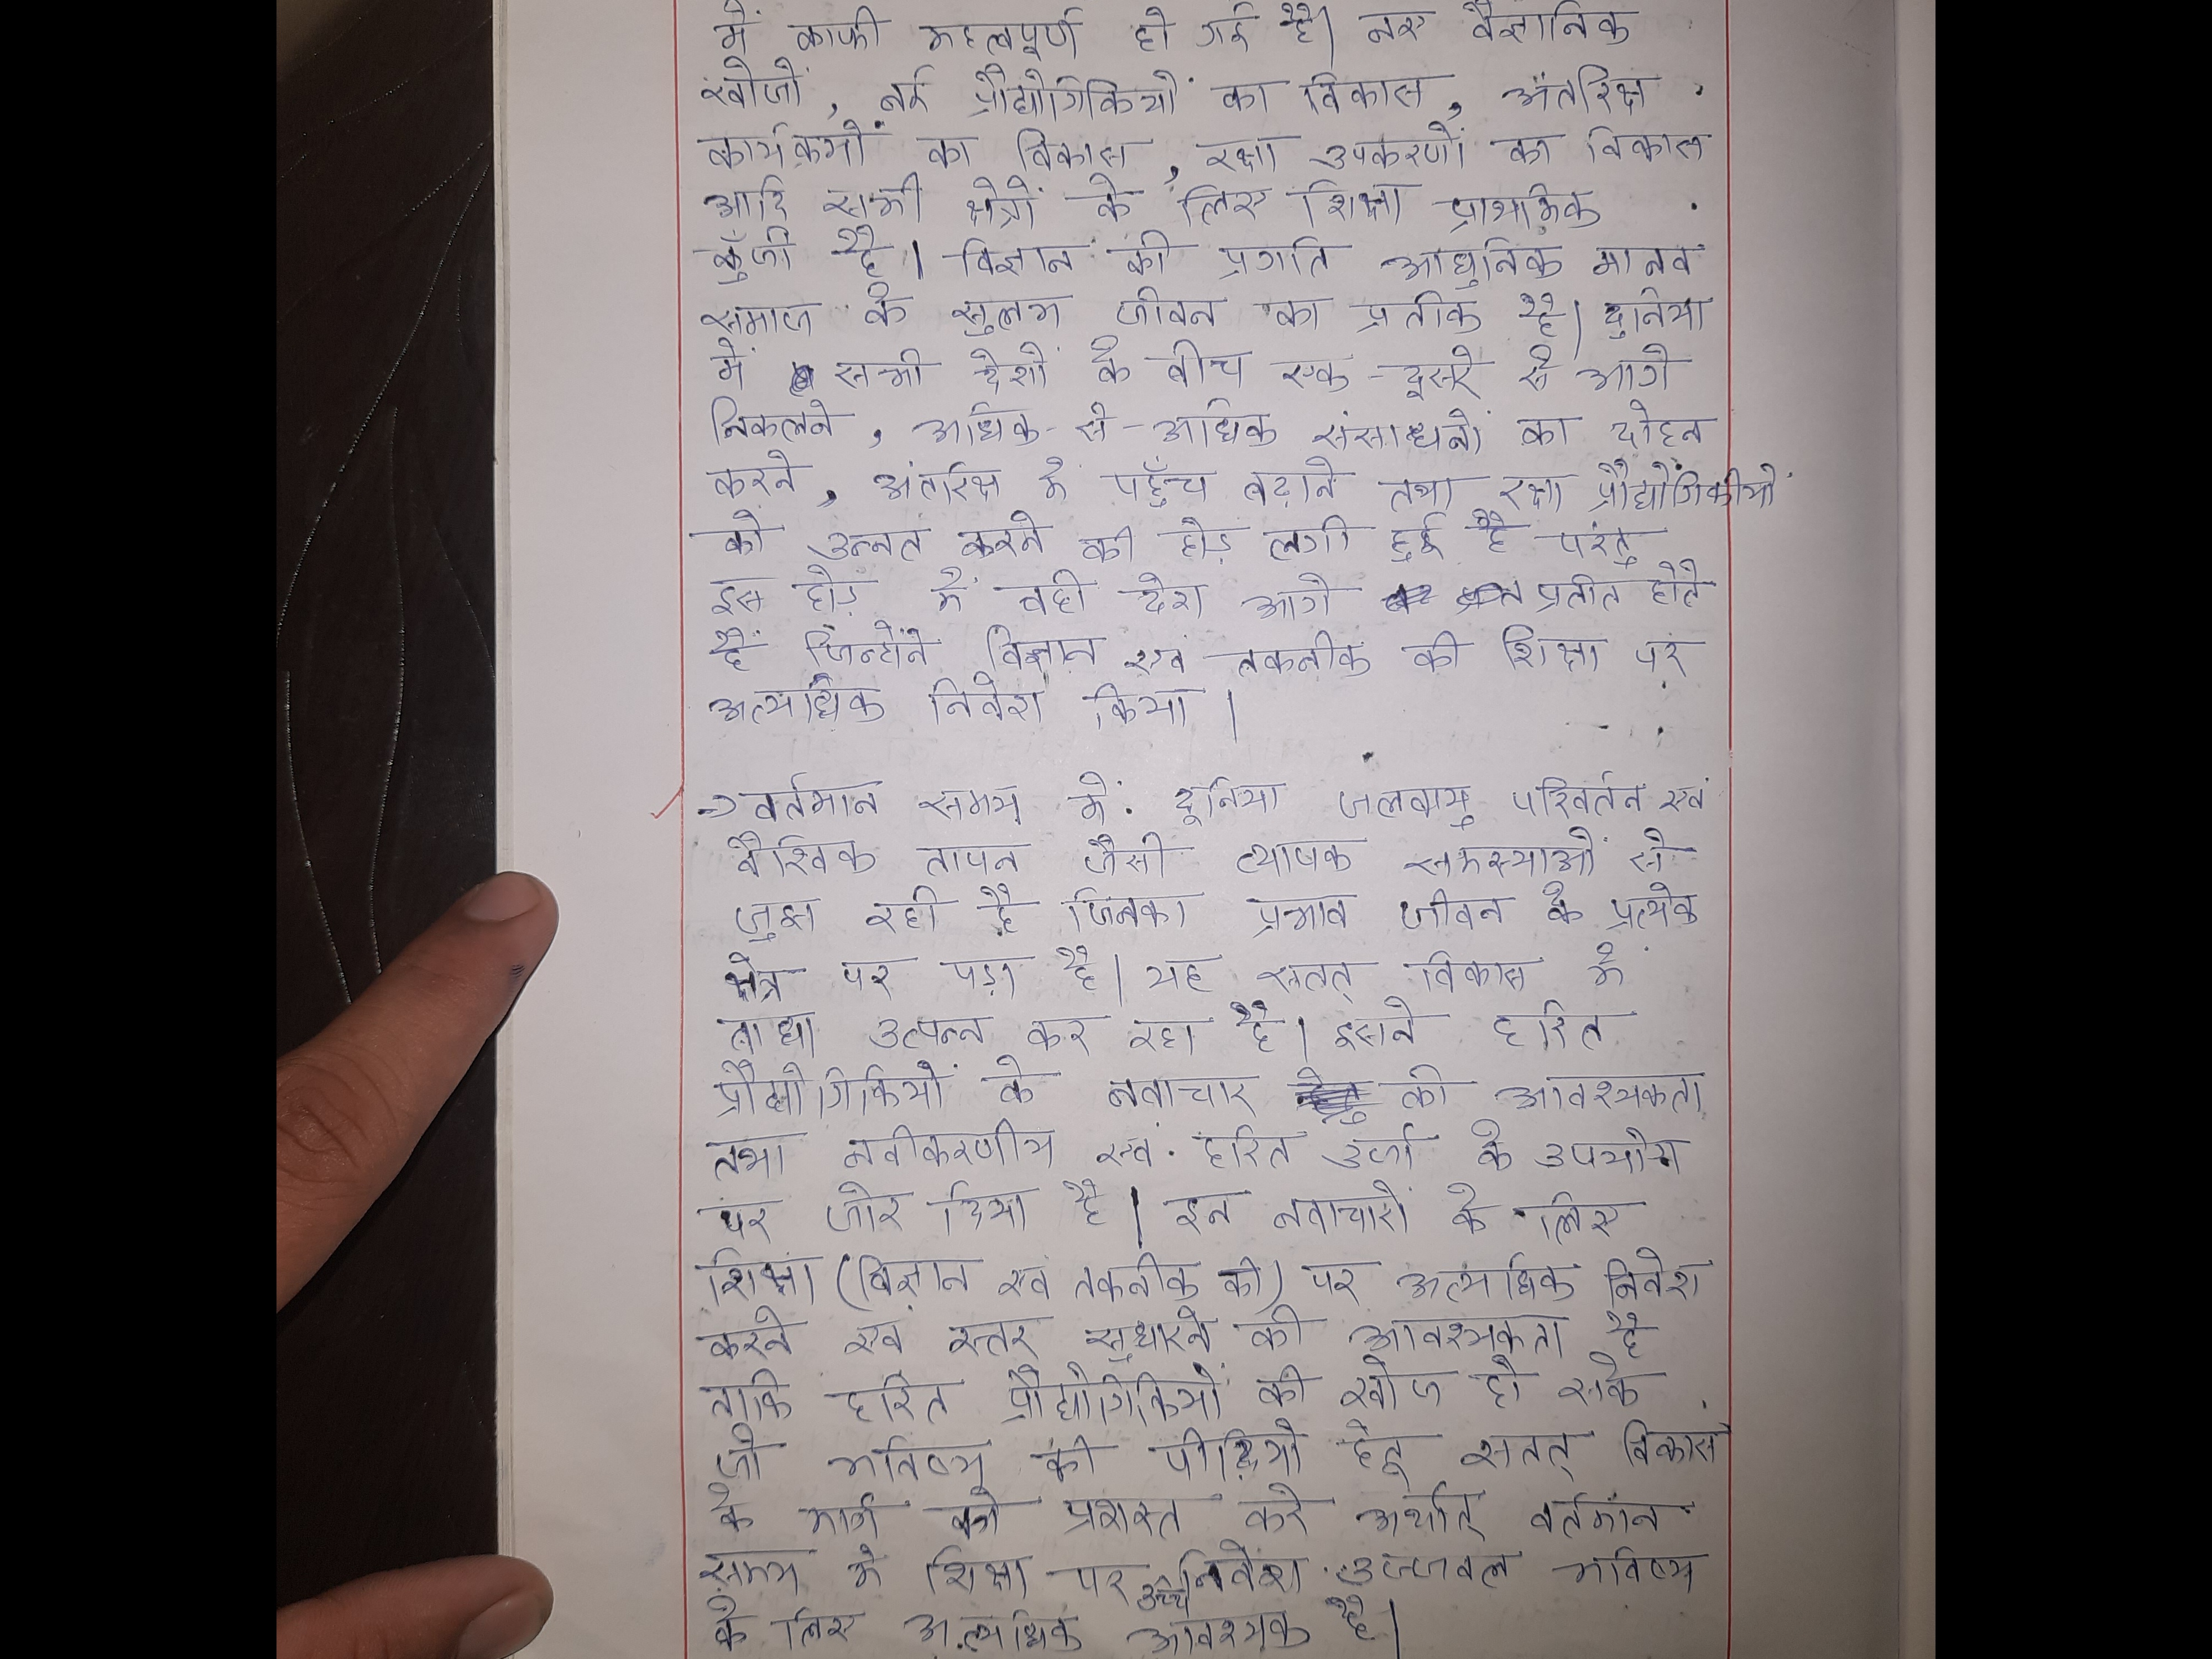 में काफी महत्वपूर्ण हो गई है। नए वैज्ञानिक
खोजों, नई प्रौद्योगिकियों का विकास, अंतरिक्ष
कार्यक्रमों का विकास, रक्षा उपकरणों का विकास
आदि सभी क्षेत्रों के लिए शिक्षा प्राथमिक
कुँजी है। विज्ञान की प्रगति आधुनिक मानव
समाज के सुलभ जीवन का प्रतीक है। दुनिया
में सभी देशों के बीच एक-दूसरे से आगे
निकलने, अधिक-से-अधिक संसाधनों का दोहन
करने, अंतरिक्ष में पहुँच बढ़ाने तथा रक्षा प्रौद्योगिकीयों
को उन्नत करने की होड़ लगी हुई है परंतु
इस होड़ में वही देश आगे प्रतीत होते
हैं जिन्होंने विज्ञान एवं तकनीक की शिक्षा पर
अत्यधिक निवेश किया।
→ वर्तमान समय में दुनिया जलवायु परिवर्तन एवं
वैश्विक तापन जैसी व्यापक समस्याओं से
जुझ रही है जिनका प्रभाव जीवन के प्रत्येक
क्षेत्र पर पड़ा है। यह सतत् विकास में
बाधा उत्पन्न कर रहा है। इसने हरित
प्रौद्योगिकियों के नवाचार की आवश्यकता
तथा नवीकरणीय एवं हरित उर्जा के उपयोग
पर जोर दिया है। इन नवाचारों के लिए
शिक्षा (विज्ञान एवं तकनीक की) पर अत्यधिक निवेश
करने एवं स्तर सुधारने की आवश्यकता है
ताकि हरित प्रौद्योगिकियों की खोज हो सके
जो भविष्य की पीढ़ियों हेतू सतत् विकास
के मार्ग को प्रशस्त करे अर्थात् वर्तमान
समय में शिक्षा पर उच्च निवेश उज्जवल भविष्य
के लिए अत्यधिक आवश्यक है।